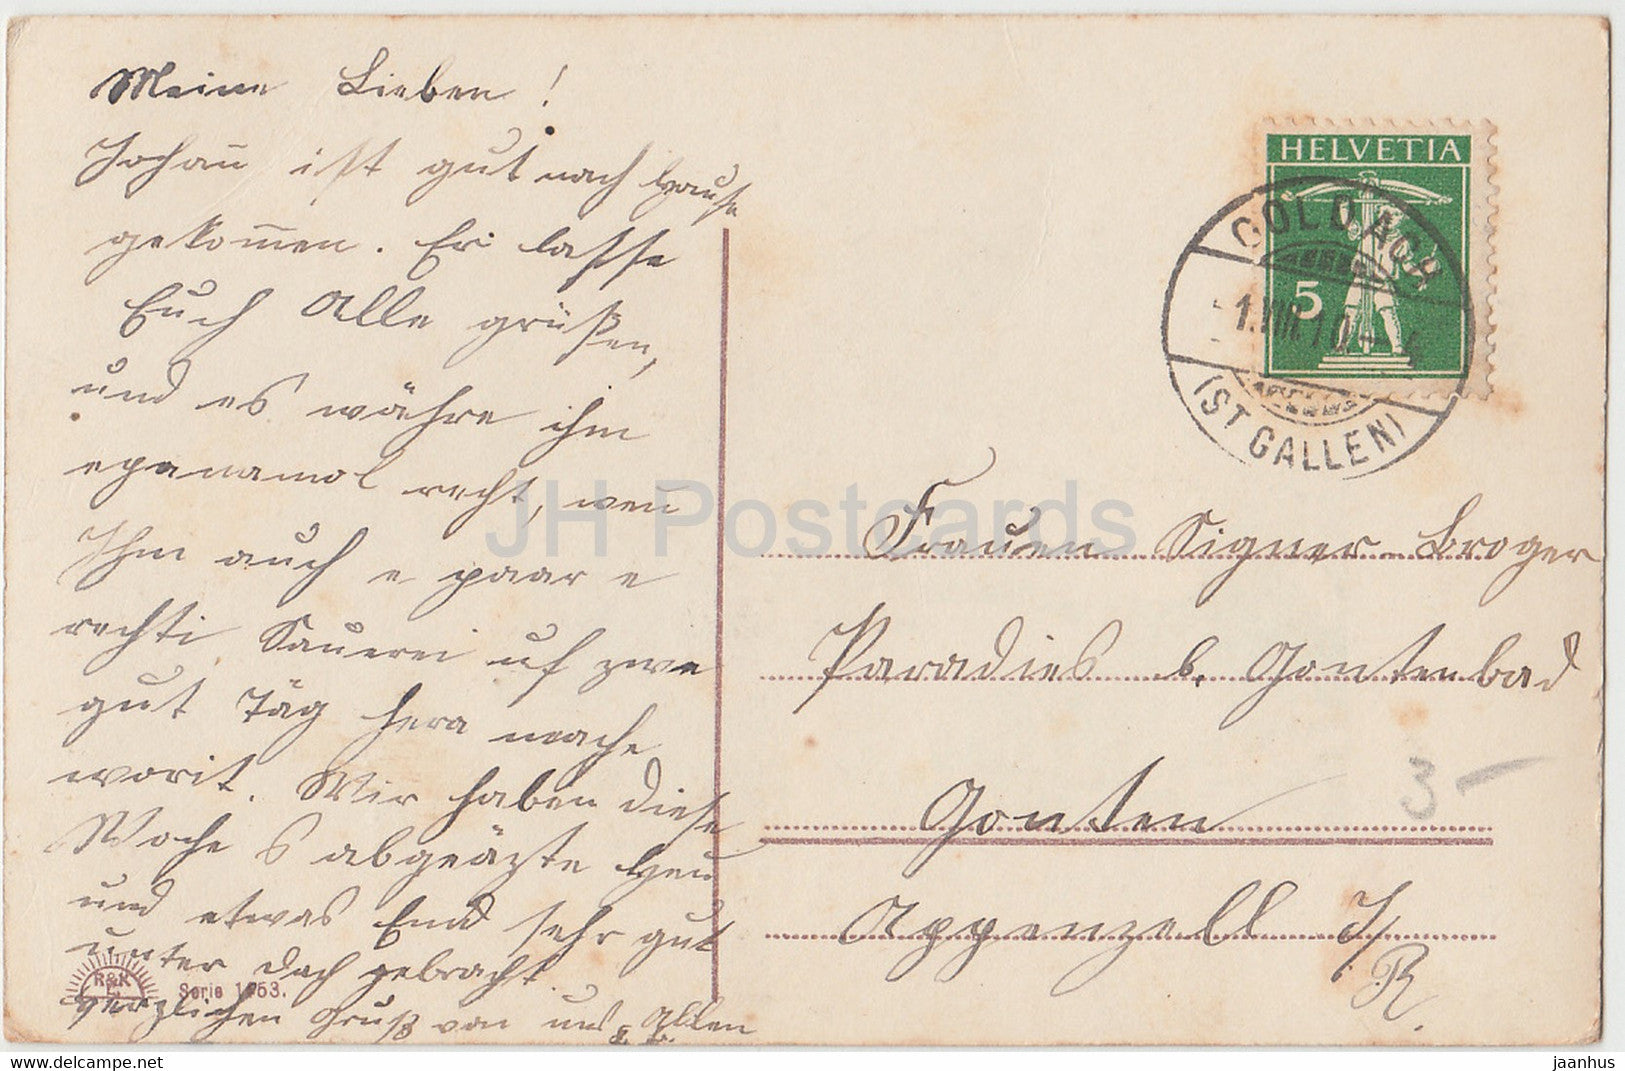 Meine Lieben!
Johañ ist gut nach Hause
gekom̄en. Er lasse
Euch Alle grüßen,
und es währe ihm
epanamol recht, weñ
Ihm auch e paar e
rechti Sauerei uf zwe
gut Täg hera mache
worit. Wir haben diese
Woche s abgeäzte Heu
und etwas Emd sehr gut
unter dach gebracht.
Herzlichen Gruß von uns Allen
R&K
L
Serie 1953.
HELVETIA
5
GOLDACH
1.VIII.10.-4
(ST GALLEN)
Frauen Signer-Broger
Paradies b. Gontenbad
Gonten
3-
Appenzell I/
R.
JH Postcards
www.delcampe.net
jaanhus